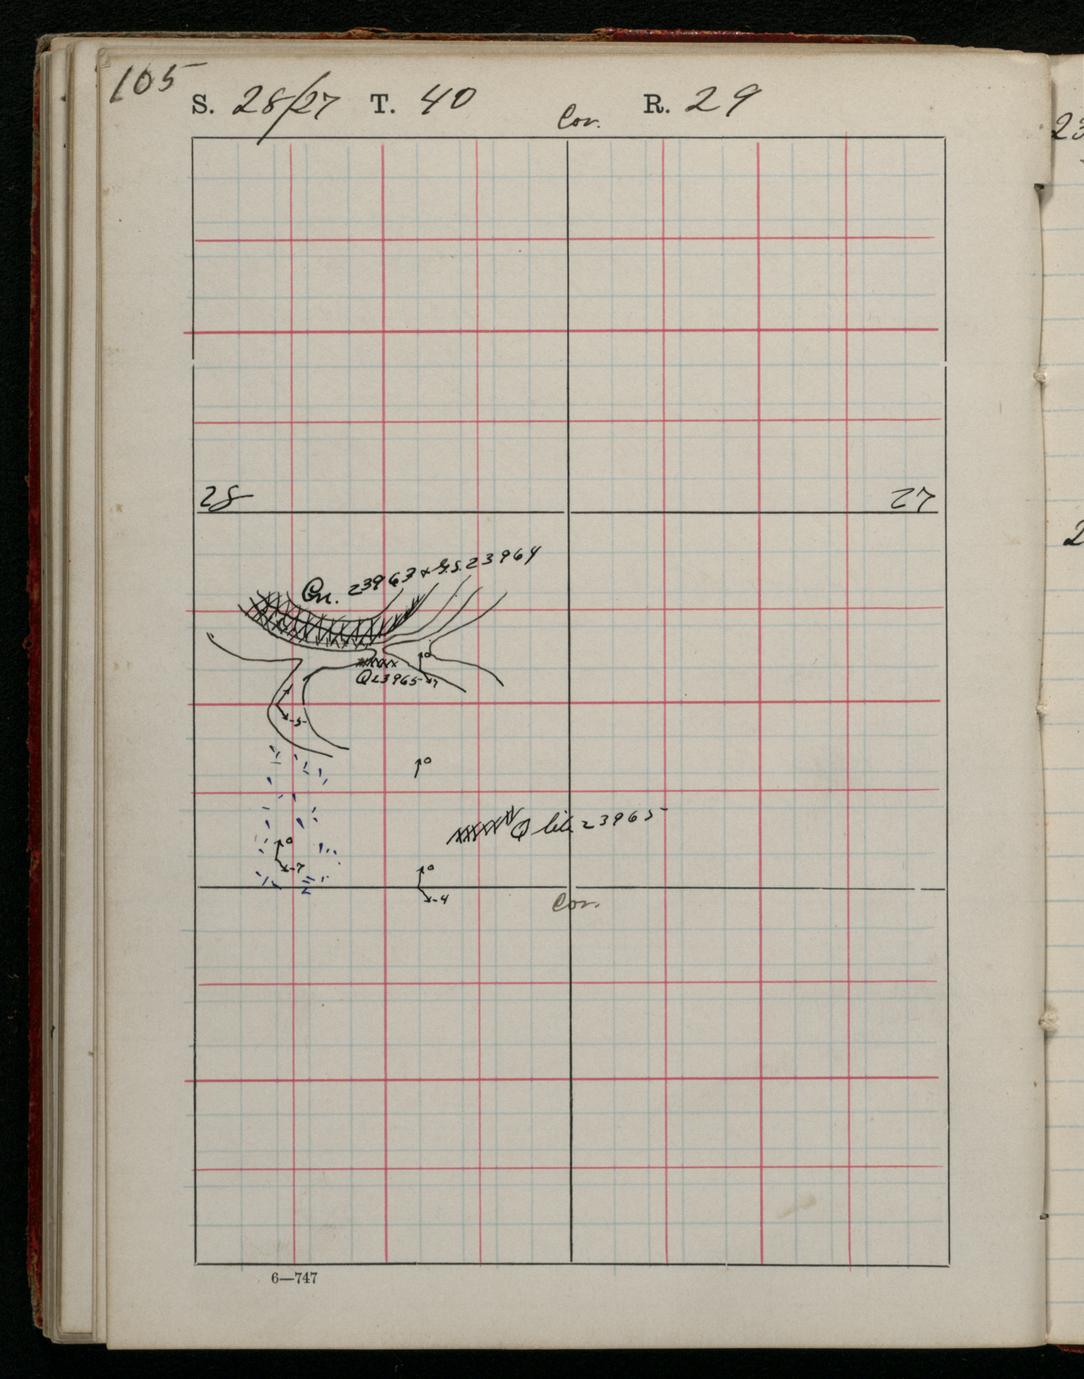 105
S. 28/27 T. 40 R. 29
Cor.
28 27
Gn. 23963 & G.S. 23964
0
Q23965 7
5
0
Q like 23965
0
7
0
4
Cor.
6—747
23
2